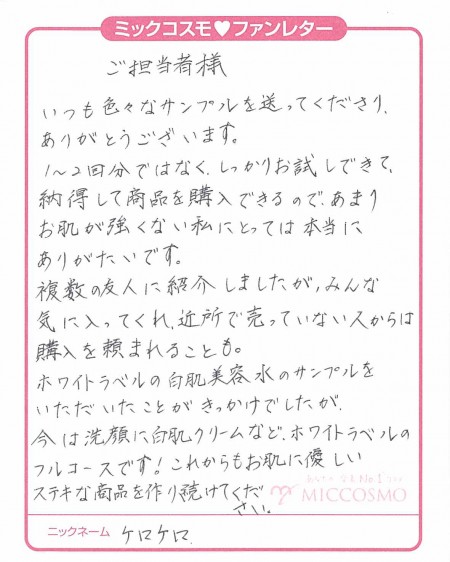 ミックコスモ♥ファンレター
ご担当者様
いつも色々なサンプルを送ってくださり、
ありがとうございます。
1〜2回分ではなく、しっかりお試しできて、
納得して商品を購入できるので、あまり
お肌が強くない私にとっては本当に
ありがたいです。
複数の友人に紹介しましたが、みんな
気に入ってくれ、近所で売っていない人からは
購入を頼まれることも。
ホワイトラベルの白肌美容水のサンプルを
いただいたことがきっかけでしたが、
今は洗顔に白肌クリームなど、ホワイトラベルの
フルコースです!これからもお肌に優しい
ステキな商品を作り続けてくだ
さい。
MICCOSMO
ニックネーム ケロケロ